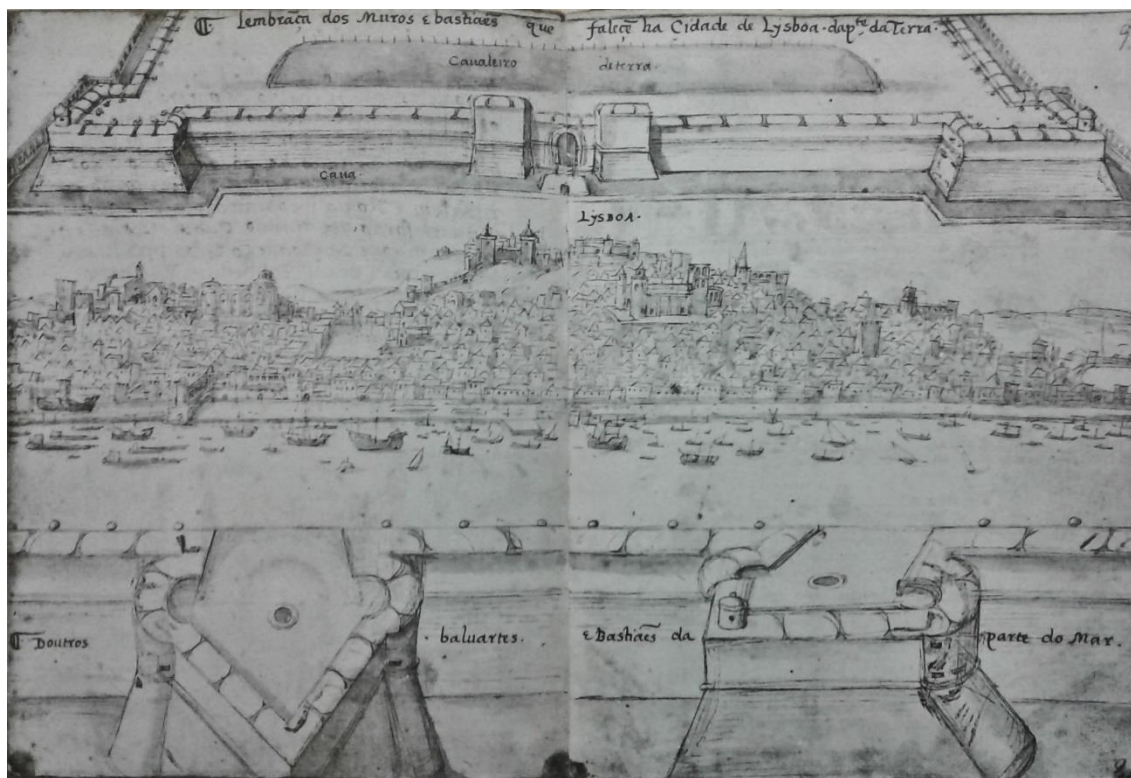 Lembrãça dos Muros e bastiães que faleçẽ ha Cidade de Lysboa. dap^te. da Terra.
Caualeiro de terra.
Caua.
LYSBOA.
Doutros baluartes. e Bastiães da parte do Mar.